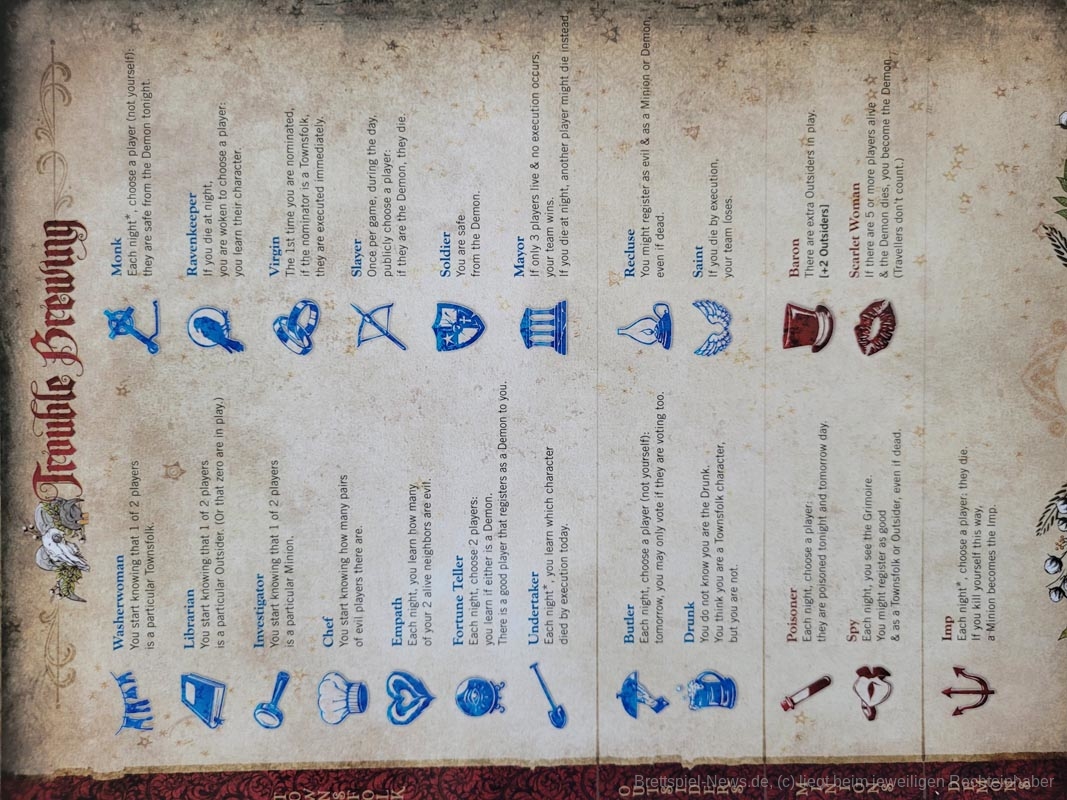 Trouble Brewing
TOWNSFOLK
Washerwoman
You start knowing that 1 of 2 players
is a particular Townsfolk.
Librarian
You start knowing that 1 of 2 players
is a particular Outsider. (Or that zero are in play.)
Investigator
You start knowing that 1 of 2 players
is a particular Minion.
Chef
You start knowing how many pairs
of evil players there are.
Empath
Each night, you learn how many
of your 2 alive neighbors are evil.
Fortune Teller
Each night, choose 2 players:
you learn if either is a Demon.
There is a good player that registers as a Demon to you.
Undertaker
Each night*, you learn which character
died by execution today.
Monk
Each night*, choose a player (not yourself):
they are safe from the Demon tonight.
Ravenkeeper
If you die at night,
you are woken to choose a player:
you learn their character.
Virgin
The 1st time you are nominated,
if the nominator is a Townsfolk,
they are executed immediately.
Slayer
Once per game, during the day,
publicly choose a player:
if they are the Demon, they die.
Soldier
You are safe
from the Demon.
Mayor
If only 3 players live & no execution occurs,
your team wins.
If you die at night, another player might die instead.
OUTSIDERS
Butler
Each night, choose a player (not yourself):
tomorrow, you may only vote if they are voting too.
Drunk
You do not know you are the Drunk.
You think you are a Townsfolk character,
but you are not.
Recluse
You might register as evil & as a Minion or Demon,
even if dead.
Saint
If you die by execution,
your team loses.
MINIONS
Poisoner
Each night, choose a player:
they are poisoned tonight and tomorrow day.
Spy
Each night, you see the Grimoire.
You might register as good
& as a Townsfolk or Outsider, even if dead.
Baron
There are extra Outsiders in play.
[+2 Outsiders]
Scarlet Woman
If there are 5 or more players alive
& the Demon dies, you become the Demon.
(Travellers don't count.)
DEMONS
Imp
Each night*, choose a player: they die.
If you kill yourself this way,
a Minion becomes the Imp.
Brettspiel-News.de, (c) liegt beim jeweiligen Rechteinhaber